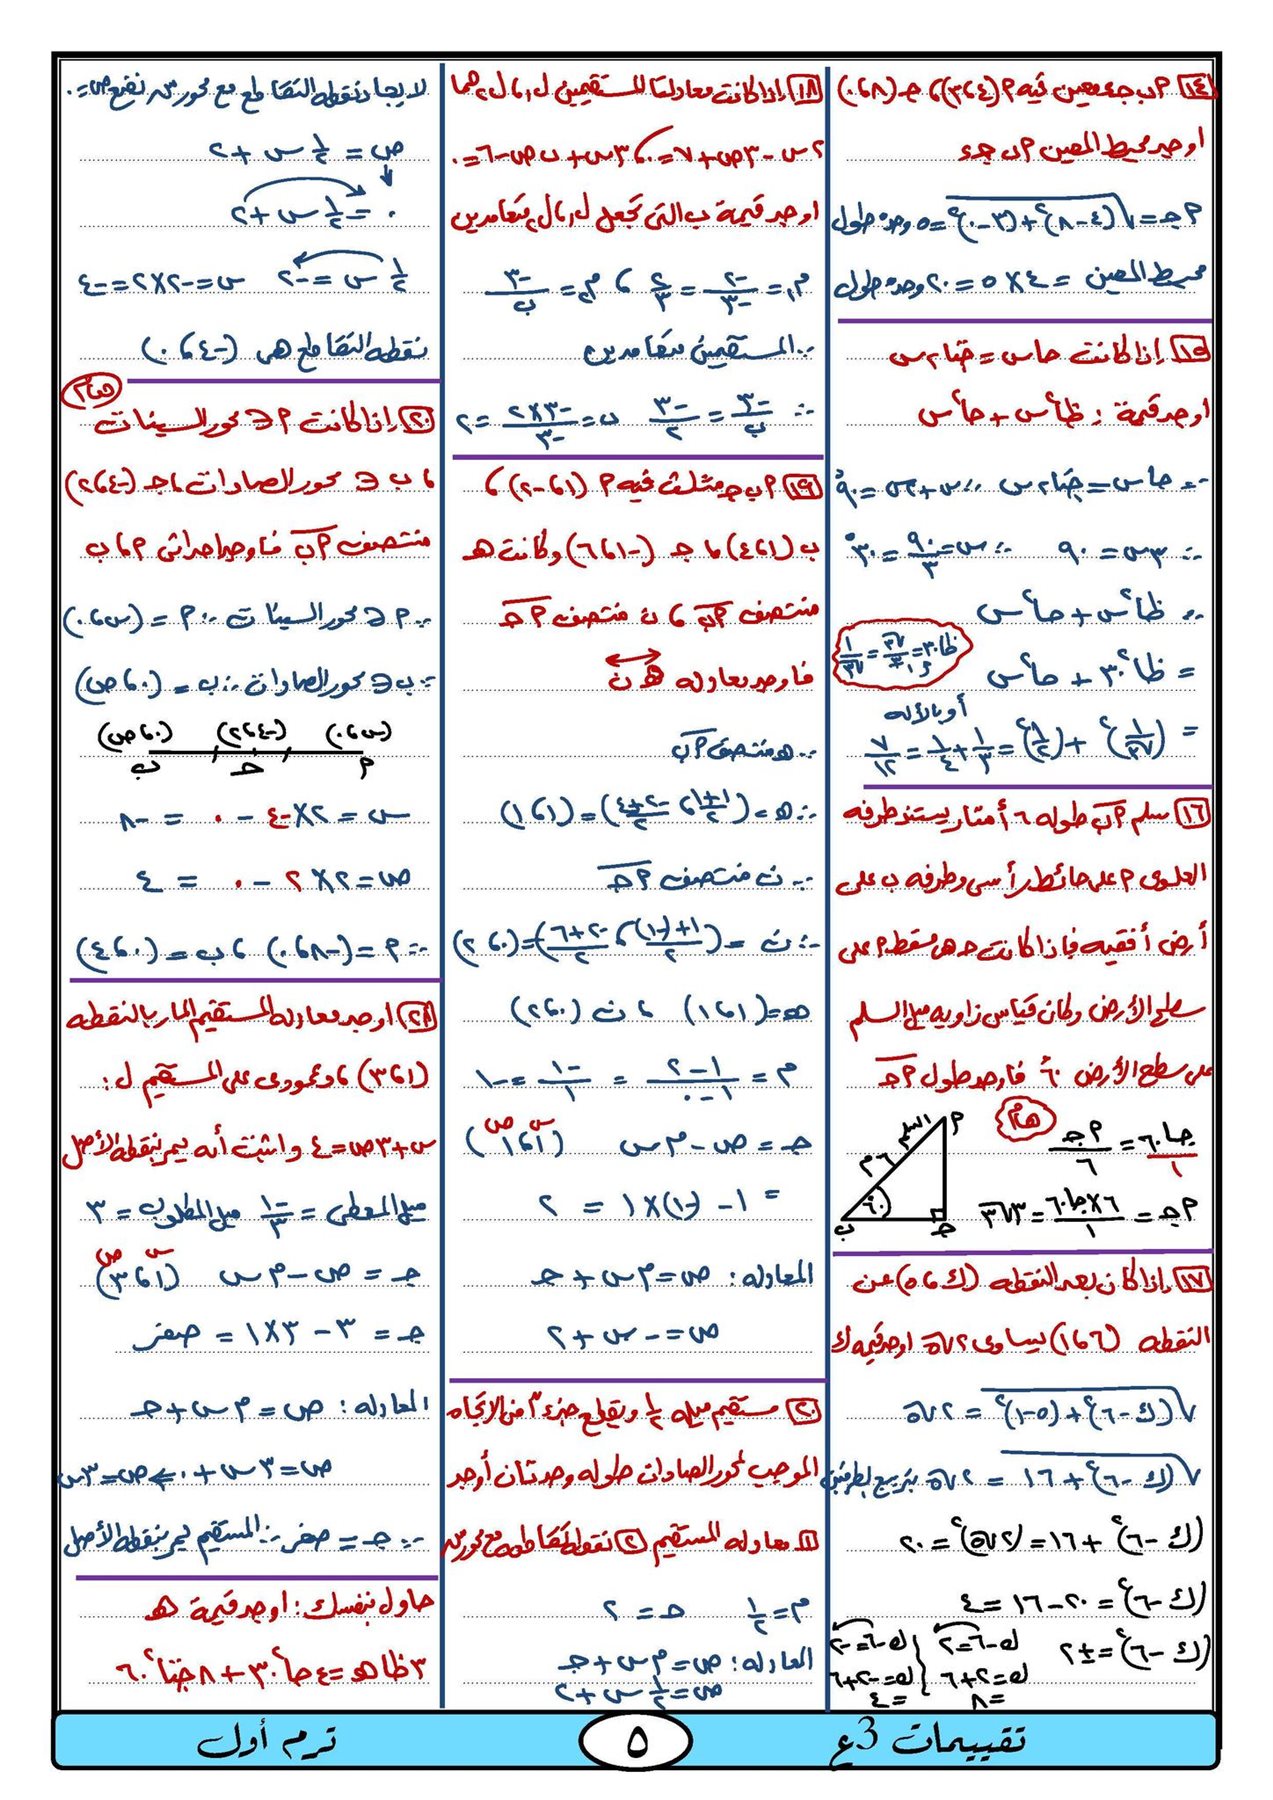 ١٤ م ب جـ ء معين فيه م (٤، ٣)، جـ (٨، ٠)
أوجد محيط المعين م ب جـ ء
م جـ = √(٤-٨)² + (٣-٠)² = ٥ وحدة طول
محيط المعين = ٤ × ٥ = ٢٠ وحدة طول
١٥ إذا كانت حاس = حتا٢س
أوجد قيمة : ظا²س + حا²س
∵ حاس = حتا٢س ∴ س + ٢س = ٩٠°
∴ ٣س = ٩٠ ∴ س = ٩٠/٣ = ٣٠°
∵ ظا²س + حا²س
ظا٣٠ = √٣/٣ = ١/√٣
= ظا²٣٠ + حا²س
أو بالآله
= (١/√٣)² + (١/٢)² = ١/٣ + ١/٤ = ٧/١٢
١٦ سلم م ب طوله ٦ أمتار يستند طرفه
العلوى م على حائط رأسى وطرفه ب على
أرض أفقيه فإذا كانت حـ هى مسقط م على
سطح الأرض وكان قياس زاويه ميل السلم
على سطح الأرض ٦٠° فاوجد طول م جـ
هام
جا٦٠/١ = م جـ/٦
م جـ = ٦×جا٦٠/١ = ٣√٣
م
السلم
٦م
٦٠
ب
حـ
١٧ إذا كان بعد النقطه (ك، ٥) عن
النقطه (٦، ١) يساوى ٢√٥ اوجد قيمه ك
√(ك-٦)² + (٥-١)² = ٢√٥
√(ك-٦)² + ١٦ = ٢√٥ بتربيع الطرفين
(ك-٦)² + ١٦ = (٢√٥)² = ٢٠
(ك-٦)² = ٢٠-١٦ = ٤
(ك-٦)² = ±٢
ك-٦=٢
ك=٢+٦
=٨
ك-٦=-٢
ك=-٢+٦
=٤
١٨ إذا كانت معادلتا المستقيمين ل١، ل٢ هما
٢س-٣ص+٧=٠، ٣س+ب ص-٦=٠
اوجد قيمة ب التى تجعل ل١، ل٢ متعامدين
م١ = -٢/-٣ = ٢/٣ ، م٢ = -٣/ب
∵ المستقيمين متعامدين
∴ -٣/ب = -٣/٢ ب = -٣×٢/-٣ = ٢
١٩ م ب جـ مثلث فيه م (١، -٢) ،
ب (١، ٤) ، جـ (-١، ٦) وكانت هـ
منتصف م ب ، ن منتصف م جـ
فاوجد معادله هـ ن
∵ هـ منتصف م ب
∴ هـ = (١+١/٢ ، -٢+٤/٢) = (١، ١)
∵ ن منتصف م جـ
∴ ن = (١+(-١)/٢ ، -٢+٦/٢) = (٠، ٢)
هـ = (١، ١) ، ن (٠، ٢)
م = ١-٢/١-٠ = -١/١ = -١
جـ = ص - م س (١، ١) س ص
= ١ - (-١)×١ = ٢
المعادله : ص = م س + جـ
ص = -س + ٢
٢٠ مستقيم ميله ١/٢ ويقطع جزءً من الاتجاه
الموجب لمحور الصادات طوله وحدتان أوجد
١ معادله المستقيم ٢ نقطه تقاطعه مع محور س
م = ١/٢ حـ = ٢
المعادله : ص = م س + جـ
ص = ١/٢ س + ٢
لايجاد نقطه التقاطع مع محور س نضع ص=٠
ص = ١/٢ س + ٢
٠ = ١/٢ س + ٢
١/٢ س = -٢ س = -٢×٢ = -٤
نقطه التقاطع هى (-٤، ٠)
هام
٢٠ إذا كانت م ∈ محور السينات
، ب ∈ محور الصادات ، جـ (-٤، ٢)
منتصف م ب فاوجد احداثى م ، ب
∵ م ∈ محور السينات ∴ م = (س، ٠)
∵ ب ∈ محور الصادات ∴ ب = (٠، ص)
(س، ٠) (-٤، ٢) (٠، ص)
م حـ ب
س = ٢×-٤ - ٠ = -٨
ص = ٢×٢ - ٠ = ٤
∴ م = (-٨، ٠) ، ب = (٠، ٤)
أوجد معادله المستقيم المار بالنقطه
(١، ٣) وعمودى على المستقيم ل :
س + ٣ص = ٤ واثبت أنه يمر بنقطه الأصل
ميل المعطى = -١/٣ ميل المطلوب = ٣
جـ = ص - م س (١، ٣) س ص
جـ = ٣ - ٣×١ = صفر
المعادله : ص = م س + جـ
ص = ٣س + ٠ ⇐ ص = ٣س
∵ جـ = صفر ∴ المستقيم يمر بنقطه الأصل
حاول بنفسك : اوجد قيمة هـ
٣ظاهـ = ٤حا²٣٠ + ٨حتا²٦٠
تقييمات 3ع
٥
ترم أول